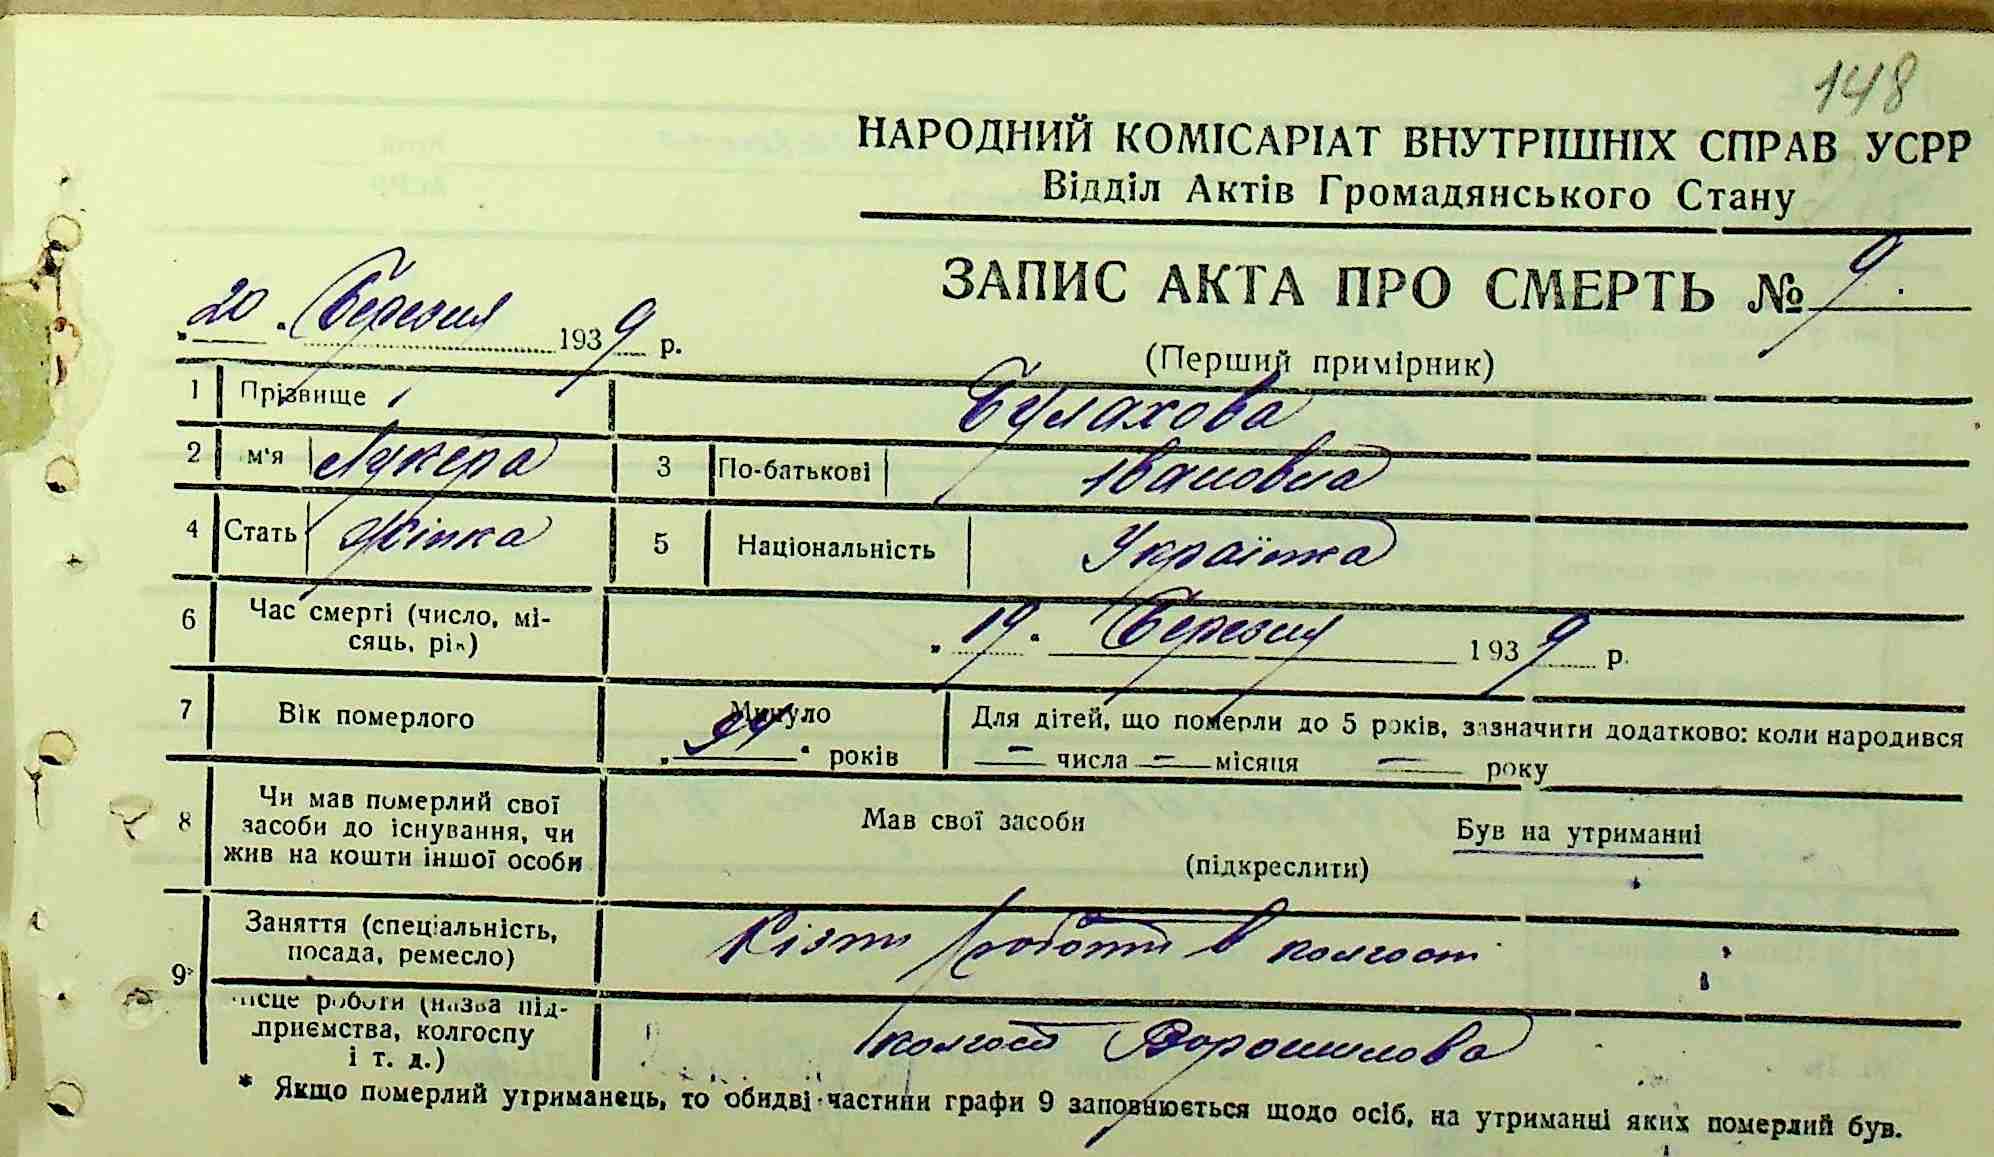 148
НАРОДНИЙ КОМІСАРІАТ ВНУТРІШНІХ СПРАВ УСРР
Відділ Актів Громадянського Стану
ЗАПИС АКТА ПРО СМЕРТЬ № 9
„20“ Березня 1939 р.
(Перший примірник)
1 Прізвище Булахова
2 м'я Лукера 3 По-батькові Івановна
4 Стать Жінка 5 Національність Українка
6 Час смерті (число, мі-
сяць, рік) „19“ Березня 1939 р.
7 Вік померлого Минуло Для дітей, що померли до 5 років, зазначити додатково: коли народився
років — числа — місяця — року
8 Чи мав померлий свої
засоби до існування, чи
жив на кошти іншої особи
Мав свої засоби Був на утриманні
(підкреслити)
9* Заняття (спеціальність,
посада, ремесло) Різні роботи в колгосп
місце роботи (назва під-
приємства, колгоспу
і т. д.) колгосп Ворошилова
* Якщо померлий утриманець, то обидві частини графи 9 заповнюється щодо осіб, на утриманні яких померлий був.